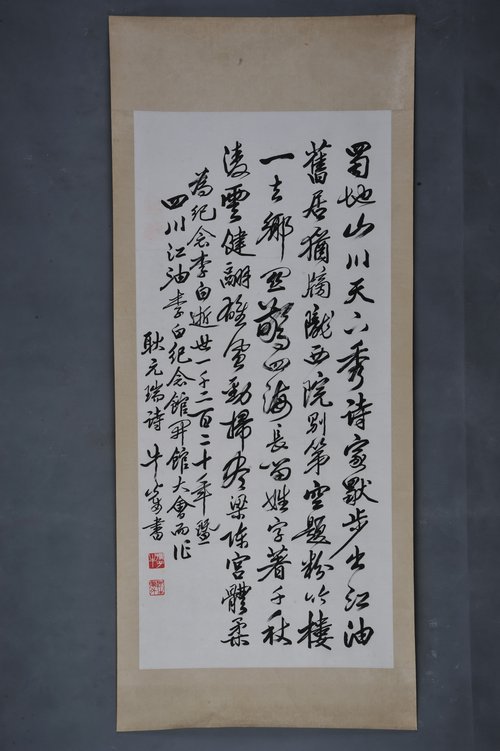 蜀地山川天下秀诗家獨步出江油
舊居猶傍隴西院別第空題粉竹樓
一去鄉関驚四海長留姓字著千秋
凌雲健翮雄風勁掃盡梁陳宮體柔
為纪念李白逝世一千二百二十年暨
四川江油李白纪念館開館大會而作
耿元瑞诗 牛書